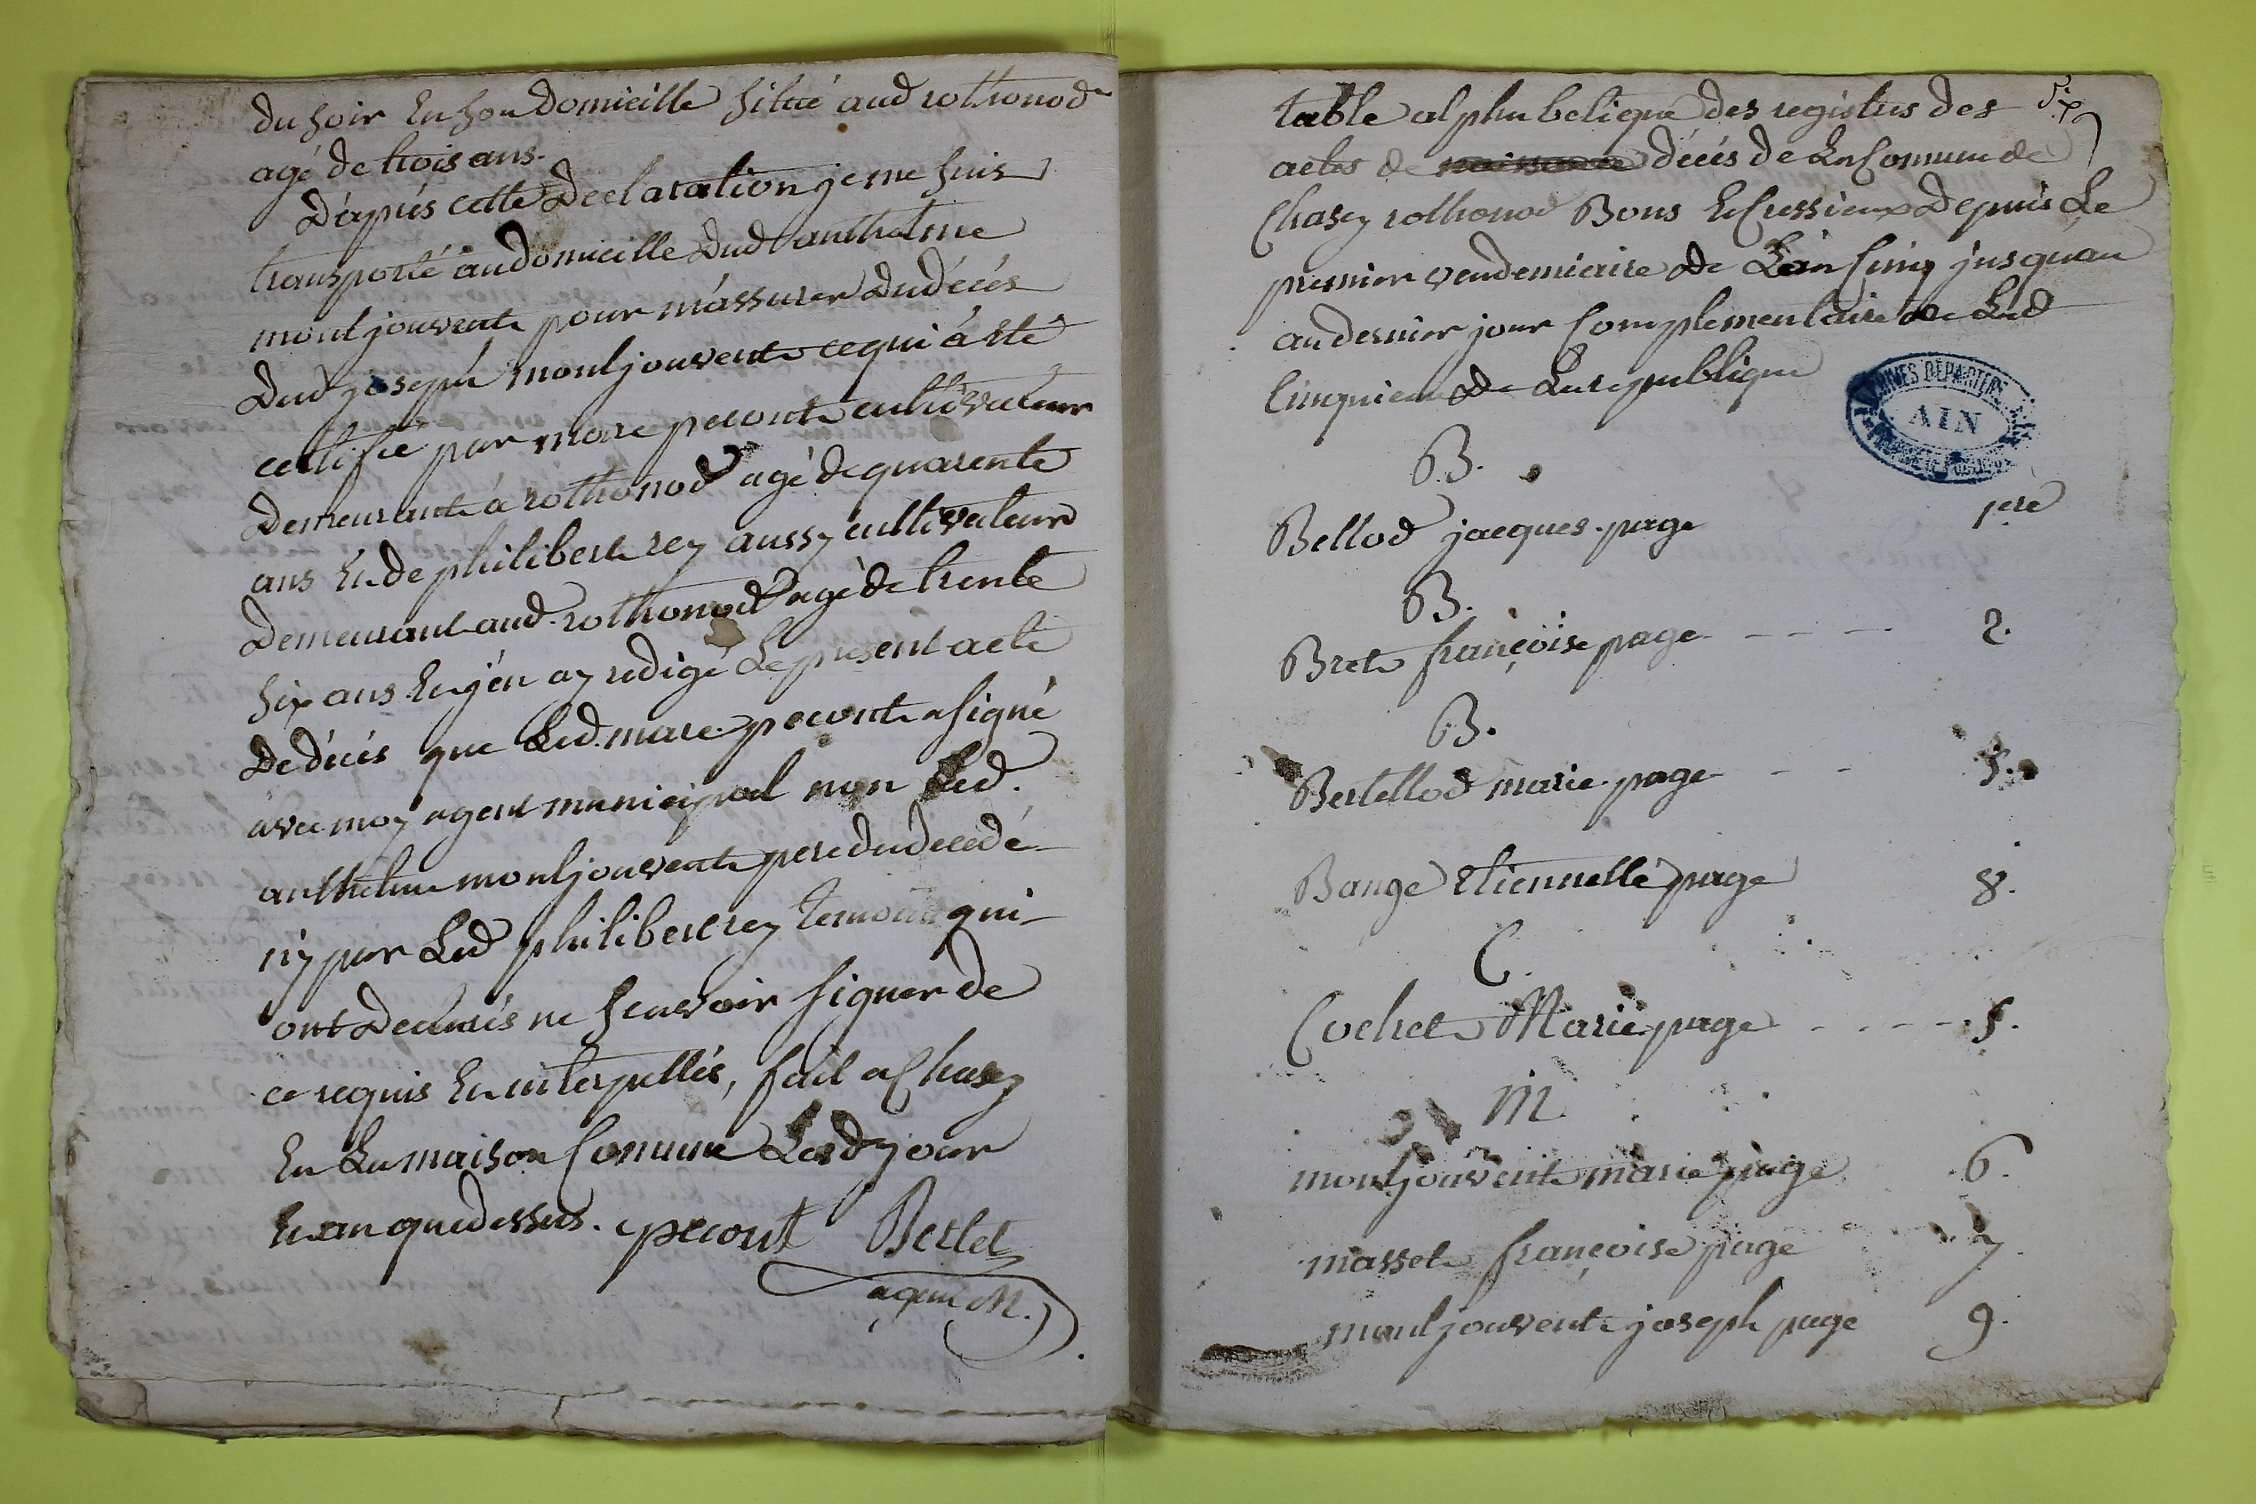 du soir En son domicille situé aud rothonod
agé de trois ans.
D'aprés cette Declaration je me suis
transporté au domicille Dud anthelme
montjouvent pour m'assurer Du décés
Dud joseph montjouvent ce qui à eté
certifié par marc pecont cultivateur
Demeurant à rothonod agé de quarente
ans Et de philibert rey aussy cultivateur
Demeurant aud. rothonod agé de trente
six ans Et j'en ay redigé Le present acte
De décés que Led. marc pecont a signé
avec moy agent municipal non Led.
anthelme montjouvent pere du decedé
n'y par Led philibert rey temoin qui
ont Declarés ne scavoir signer de
ce requis Et interpellés, fait a Chasey
En La maison Comune Lesd jour
Et an que dessus. pecont Bertet
agent M.
table alphabetique des registres des
actes de naissance décés de La Comune de
Chasey rothonod Bons Et Cressieux Depuis Le
premier vendemiaire de L'an Cinq jusqu'au
au dernier jour Complementaire de Lad
Cinquieme de La republique
six
ARCHIVES DÉPARTEMENTALES
AIN
B.
Bellod jacques page 1ere
B.
Bret françoise page - - - - 2.
B.
Bertellod marie page - - 5.
Bange Etiennette page 8.
C.
Cochet Marie page - - - - 5.
M
montjouvent marie page 6.
masset françoise page 7
montjouvent joseph page 9.